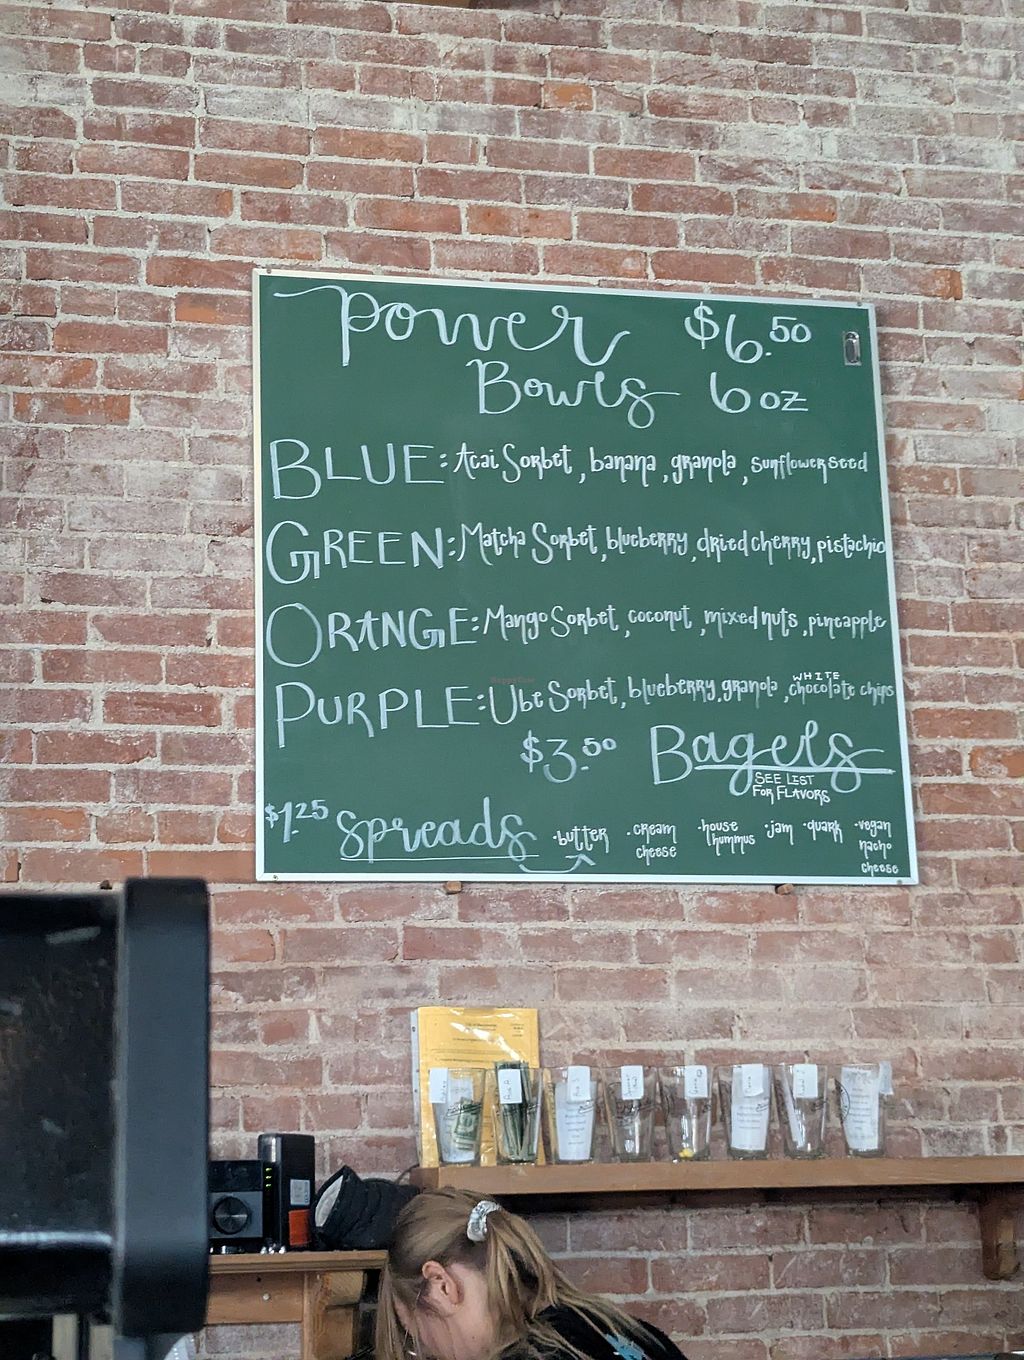 Power $6.50
Bowls 6 oz
BLUE: Acai Sorbet, banana, granola, sunflower seed
GREEN: Matcha Sorbet, blueberry, dried cherry, pistachio
ORANGE: Mango Sorbet, coconut, mixed nuts, pineapple
PURPLE: Ube Sorbet, blueberry, granola, WHITE chocolate chips
$3.50 Bagels
SEE LIST
FOR FLAVORS
$1.25 Spreads
·butter
·cream
cheese
·house
hummus
·jam
·quark
·vegan
nacho
cheese